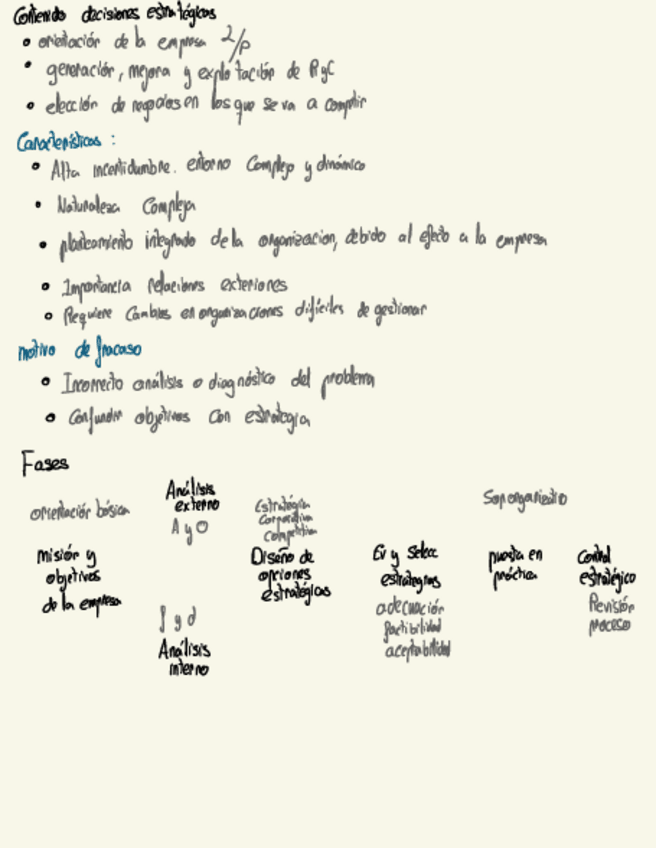 Contenido decisiones estratégicas
• orientación de la empresa l/p
• generación, mejora y explotación de R y C
• elección de negocios en los que se va a competir
Características :
• Alta incertidumbre. entorno Complejo y dinámico
• Naturaleza Compleja
• planteamiento integrado de la organizacion, debido al efecto a la empresa
• Importancia relaciones exteriores
• Requiere Cambios en organizaciones difíciles de gestionar
motivo de fracaso
• Incorrecto análisis o diagnóstico del problema
• Confundir objetivos con estrategia
Fases
orientación básica
misión y
objetivos
de la empresa
Análisis
externo
A y O
f y d
Análisis
interno
Estratégica
Corporativa
Competitiva
Diseño de
opciones
estratégicas
Ev y Selecc
estrategias
adecuación
factibilidad
aceptabilidad
puesta en
práctica
Control
estratégico
Revisión
proceso